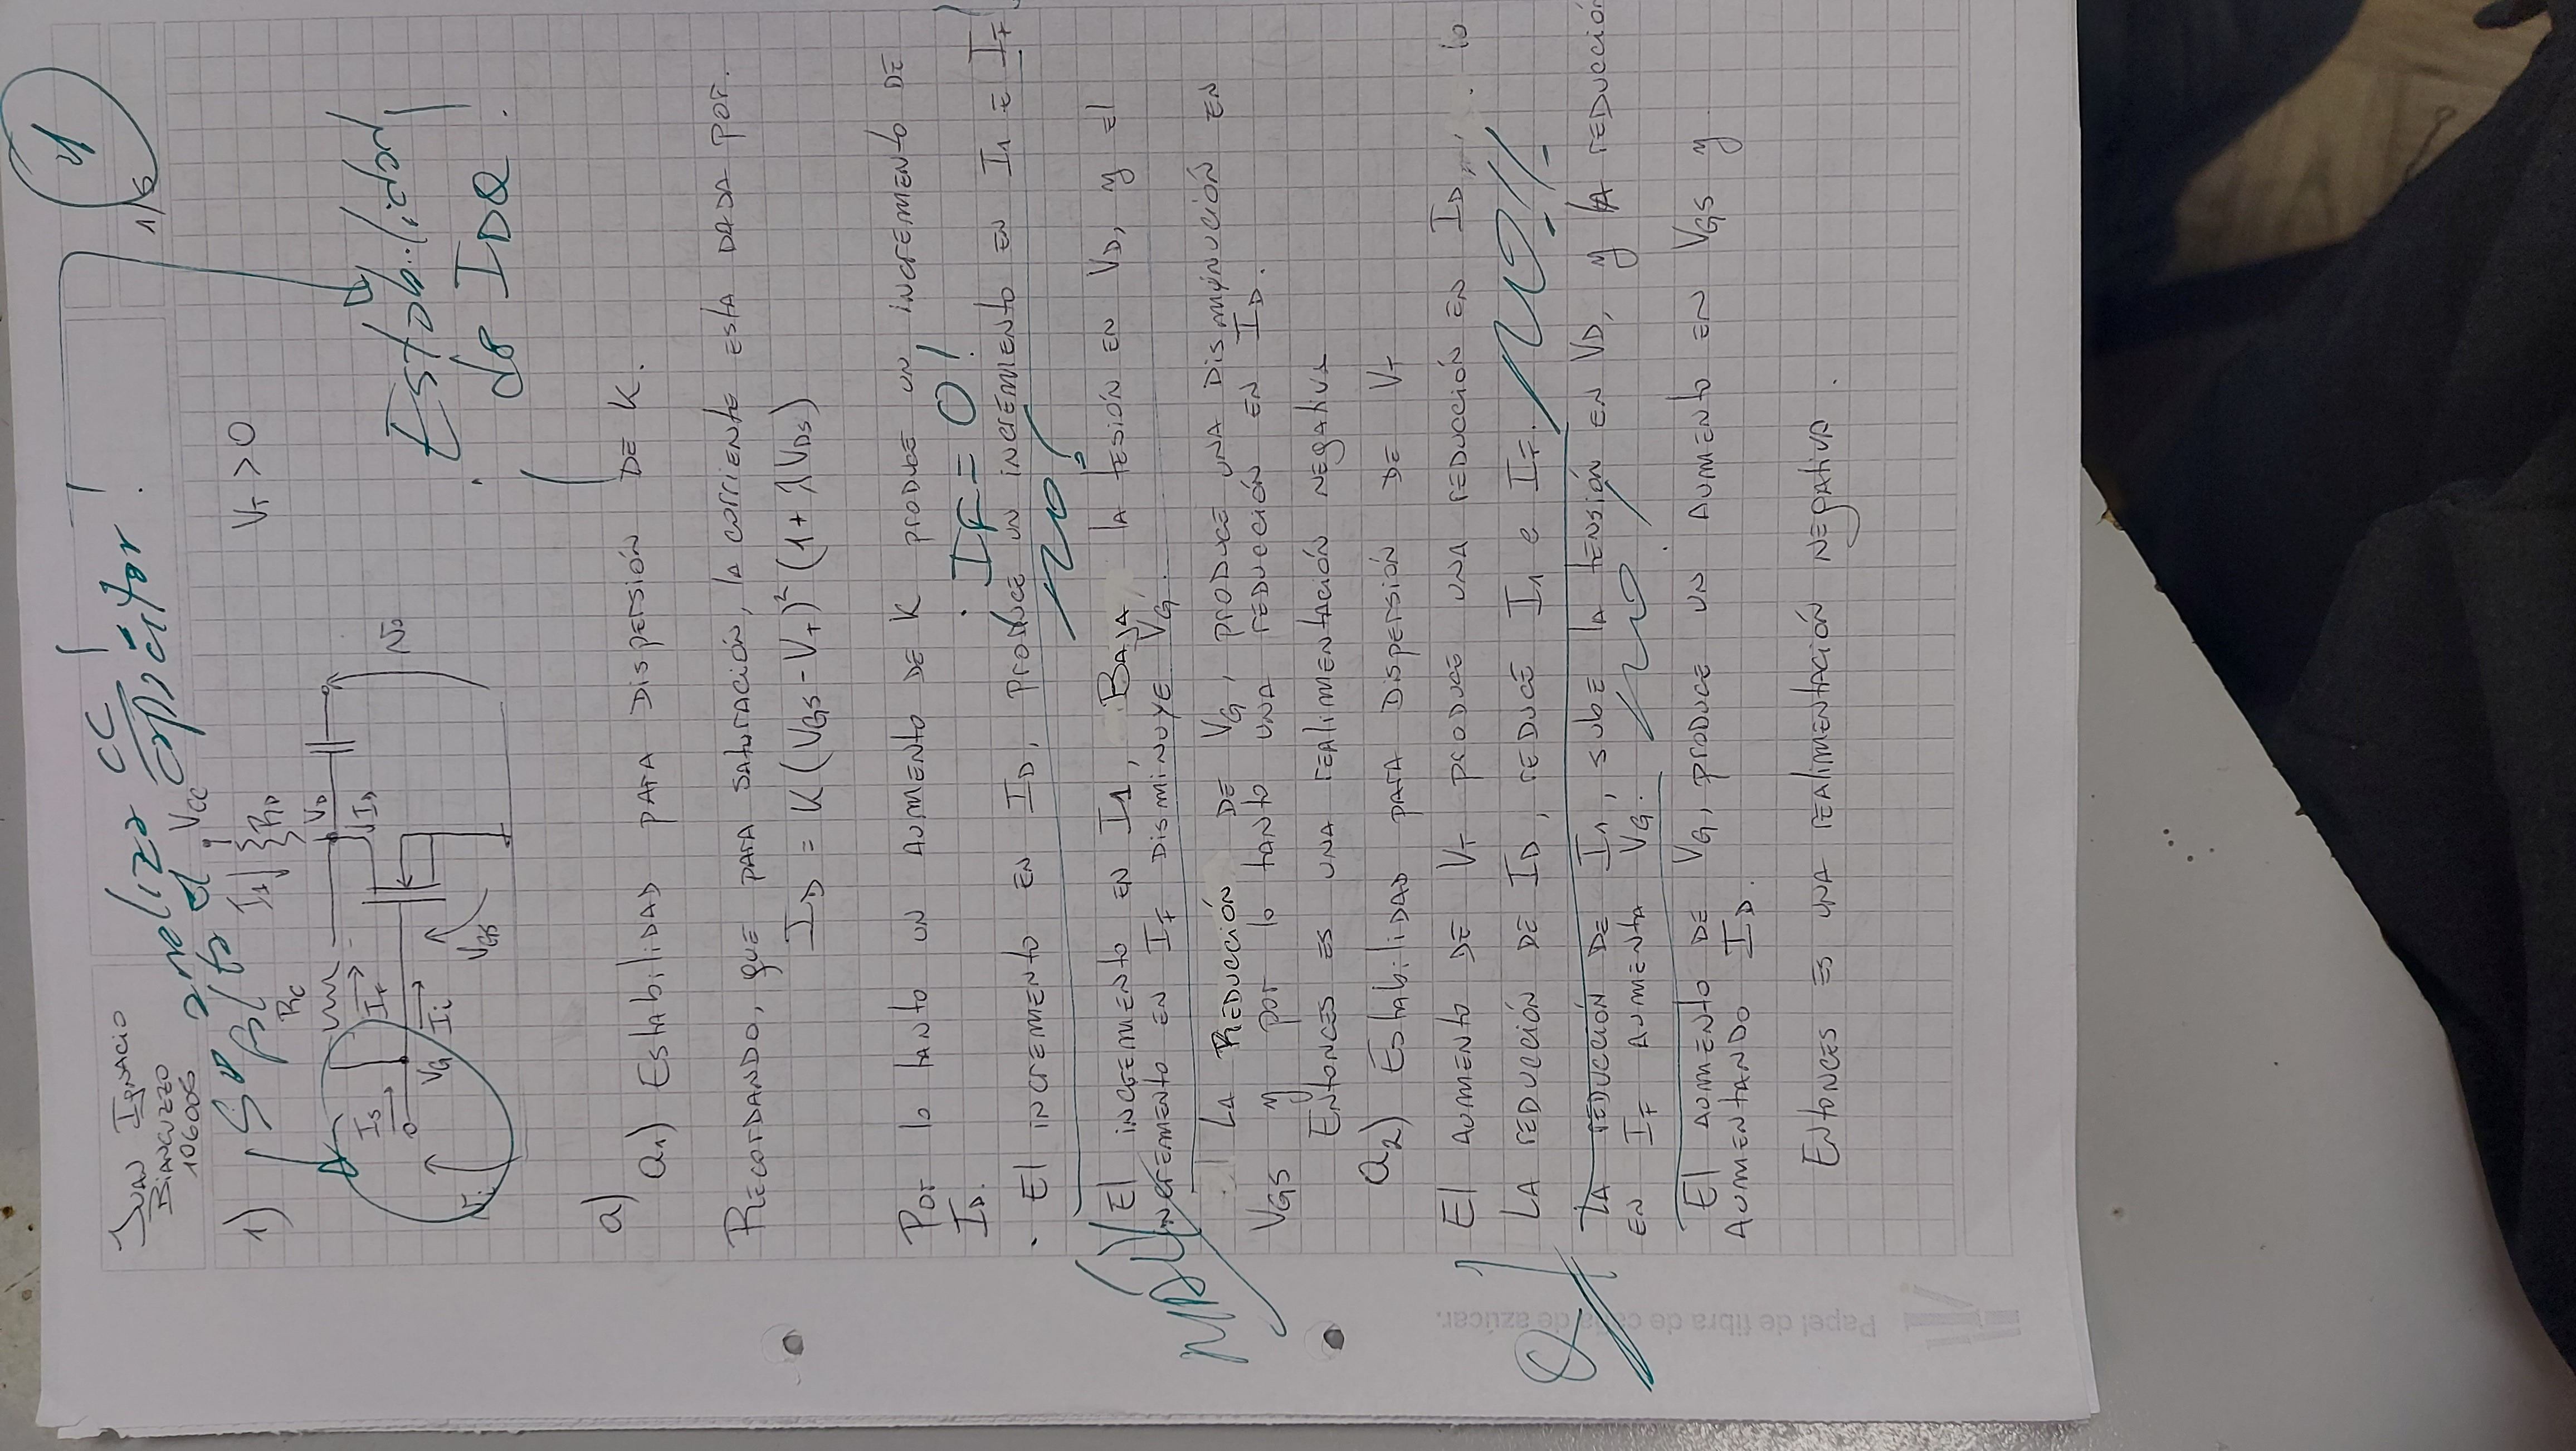 JUAN IGNACIO
BIANCUZZO
106005
Se analiza CC!
falta el capacitor!
4
1/5
1)
VCC
I1
RD
VT > 0
RC
VD
IS
IF
ID
VG
Ii
VGS
Vi
Vo
¡Estabilidad
de IDQ!
a)
a1) Estabilidad para dispersión de K.
Recordando, que para saturación, la corriente esta dada por.
ID = K (VGS - VT)² (1 + λ VDS)
Por lo tanto un aumento de K produce un incremento de
ID.
¡IF = 0!
· El incremento en ID, produce un incremiento en I1 e IF
NO!
MAL
El incremento en I1, Baja la tesión en VD, y el
incremento en IF disminuye VG.
La Reducción de VG, produce una disminución en
VGS y por lo tanto una reducción en ID.
Entonces es una realimentación negativa
a2) Estabilidad para dispersión de VT
El aumento de VT produce una reducción en ID, lo
La reducción de ID, reduce I1 e IF. NO!!
La reducción de I1, sube la tensión en VD, y la reducción
en IF aumenta VG. NO!
El aumento de VG, produce un aumento en VGS y
aumentando ID.
Entonces es una realimentación negativa.
Papel de fibra de caña de azúcar.